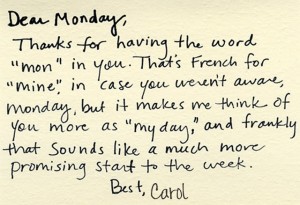 Dear Monday,
Thanks for having the word
"mon" in you. That's French for
"mine", in case you weren't aware,
monday, but it makes me think of
you more as "my day," and frankly
that sounds like a much more
promising start to the week.
Best, Carol